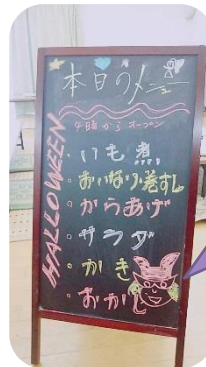 本日のメニュー
4時からオープン
HALLOWEEN
・いも煮
・おいなり巻すし
・からあげ
・サラダ
・かき
・おかし